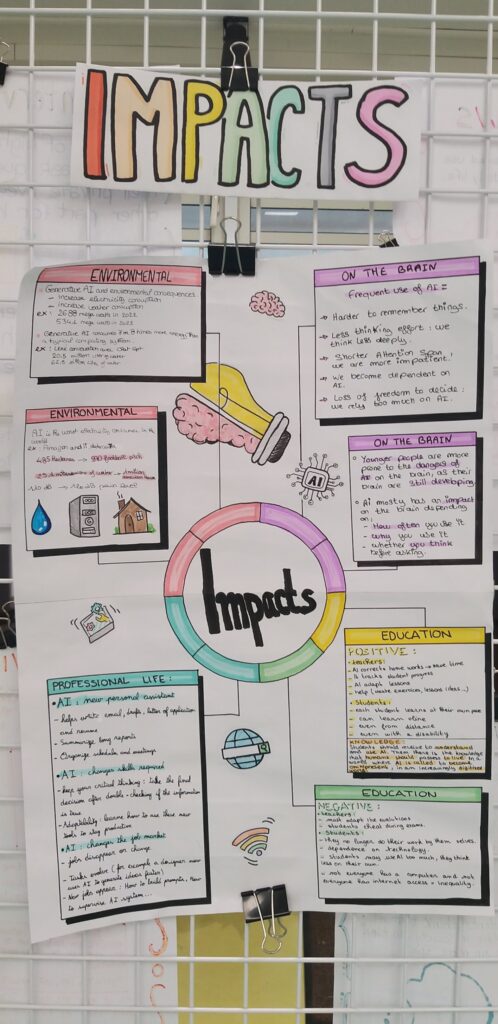 IMPACTS
ENVIRONMENTAL
Generative AI and environmental consequences:
- increase electricity
- increase water
ex: 2688 mega watts in 2022
5341 mega watts in 2023
Generative AI consumes 7 or 8 times more energy than
a typical computing system.
ex:
ENVIRONMENTAL
AI is the
world
ex: Amazon and
ON THE BRAIN
Frequent use of AI =
→ Harder to remember things.
→ Less thinking effort: we
think less deeply.
→ Shorter Attention Span,
we are more impatient.
→ We become dependent on
AI.
→ Loss of freedom to decide:
we rely too much on AI.
ON THE BRAIN
Younger people are more
prone to the dangers of
AI on the brain, as their
brain are still developing.
Ai mostly has an impact
on the brain depending
on:
- How often you use it
- why you use it
- whether you think
before asking.
AI
Impacts
EDUCATION
POSITIVE:
- teachers:
AI correct home works → save time
AI tracks student progress
AI adapt lessons
help (create exercices, lessons ideas...)
- Students:
- each student learns at their own pace
- can learn alone
- even from distance
- even with a disability
KNOWLEDGE:
Students should involve to understand
and use AI. Then there is the knowledge
that humans should possess to live in a
world where AI is called to become
omnipresent, in an increasingly digitized
EDUCATION
NEGATIVE:
- teachers:
- must adapt the evaluations
- students cheat during exams.
- Students:
- they no longer do their work by them selves.
- dependence on technology.
- students may use AI too much, they think
less on their own.
not everyone has a computer and not
everyone has internet access = inequality.
PROFESSIONAL LIFE:
• AI: new personal assistant
- helps write email, drafts, letter of application
and resume
- Summarize long reports
- Organize schedule and meetings
• AI: changes skills required
- keep your critical thinking: take the final
decision after double-checking if the information
is true
- Adaptability: learn how to use these new
tools to stay productive
• AI: changes the job market
- jobs disappear or change
- Tasks evolve (for example a designer now
uses AI to generate ideas faster)
- New jobs appears: How to build prompts, How
to supervise AI system...